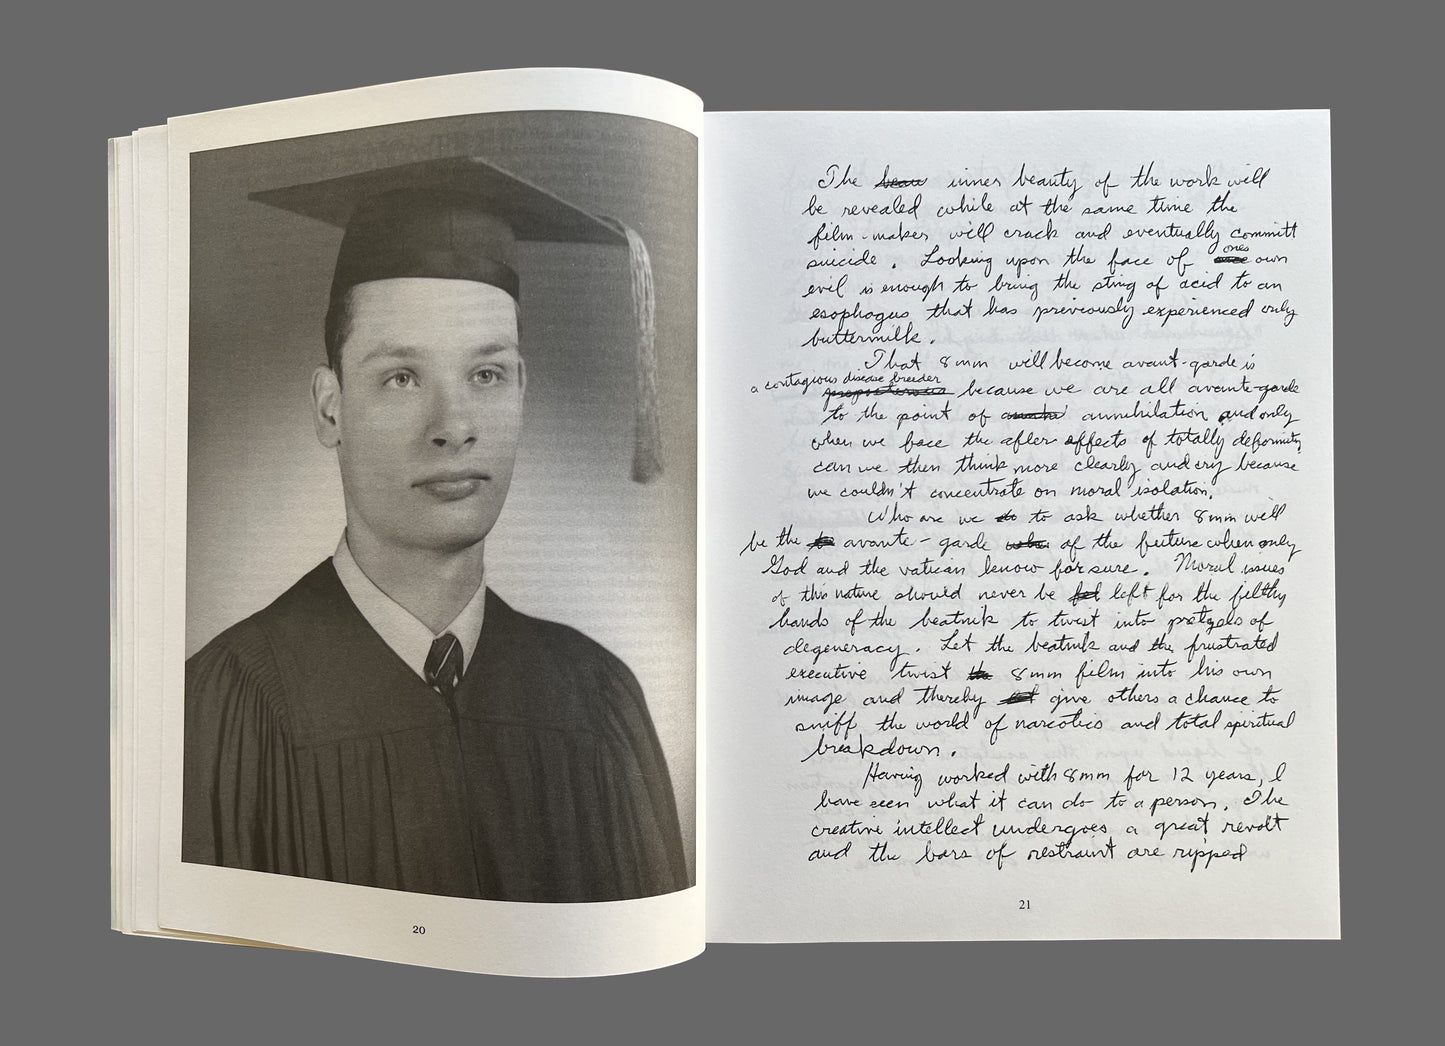 20
The inner beauty of the work will
be revealed while at the same time the
film-maker will crack and eventually committ
suicide. Looking upon the face of ones own
evil is enough to bring the sting of acid to an
esophagus that has previously experienced only
buttermilk.
That 8mm will become avant-garde is
a contagious disease breeder
preposterous because we are all avante-garde
to the point of annihilation and only
when we face the after affects of totally deformity
can we then think more clearly and cry because
we couldn't concentrate on moral isolation.
Who are we do to ask whether 8mm will
be the avante-garde of the future when only
God and the vatican know for sure. Moral issues
of this nature should never be left for the filthy
hands of the beatnik to twist into pretzels of
degeneracy. Let the beatnik and the frustrated
executive twist the 8mm film into his own
image and thereby give others a chance to
sniff the world of narcotics and total spiritual
breakdown.
Having worked with 8mm for 12 years, I
have seen what it can do to a person. The
creative intellect undergoes a great revolt
and the bars of restraint are ripped
21